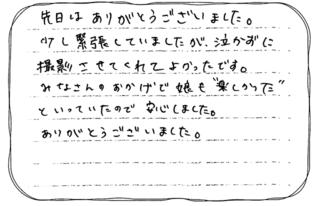 先日は ありがとうございました。
少し緊張していましたが、泣かずに
撮影させてくれてよかったです。
みなさんのおかげで娘も"楽しかった"
といっていたので安心しました。
ありがとうございました。